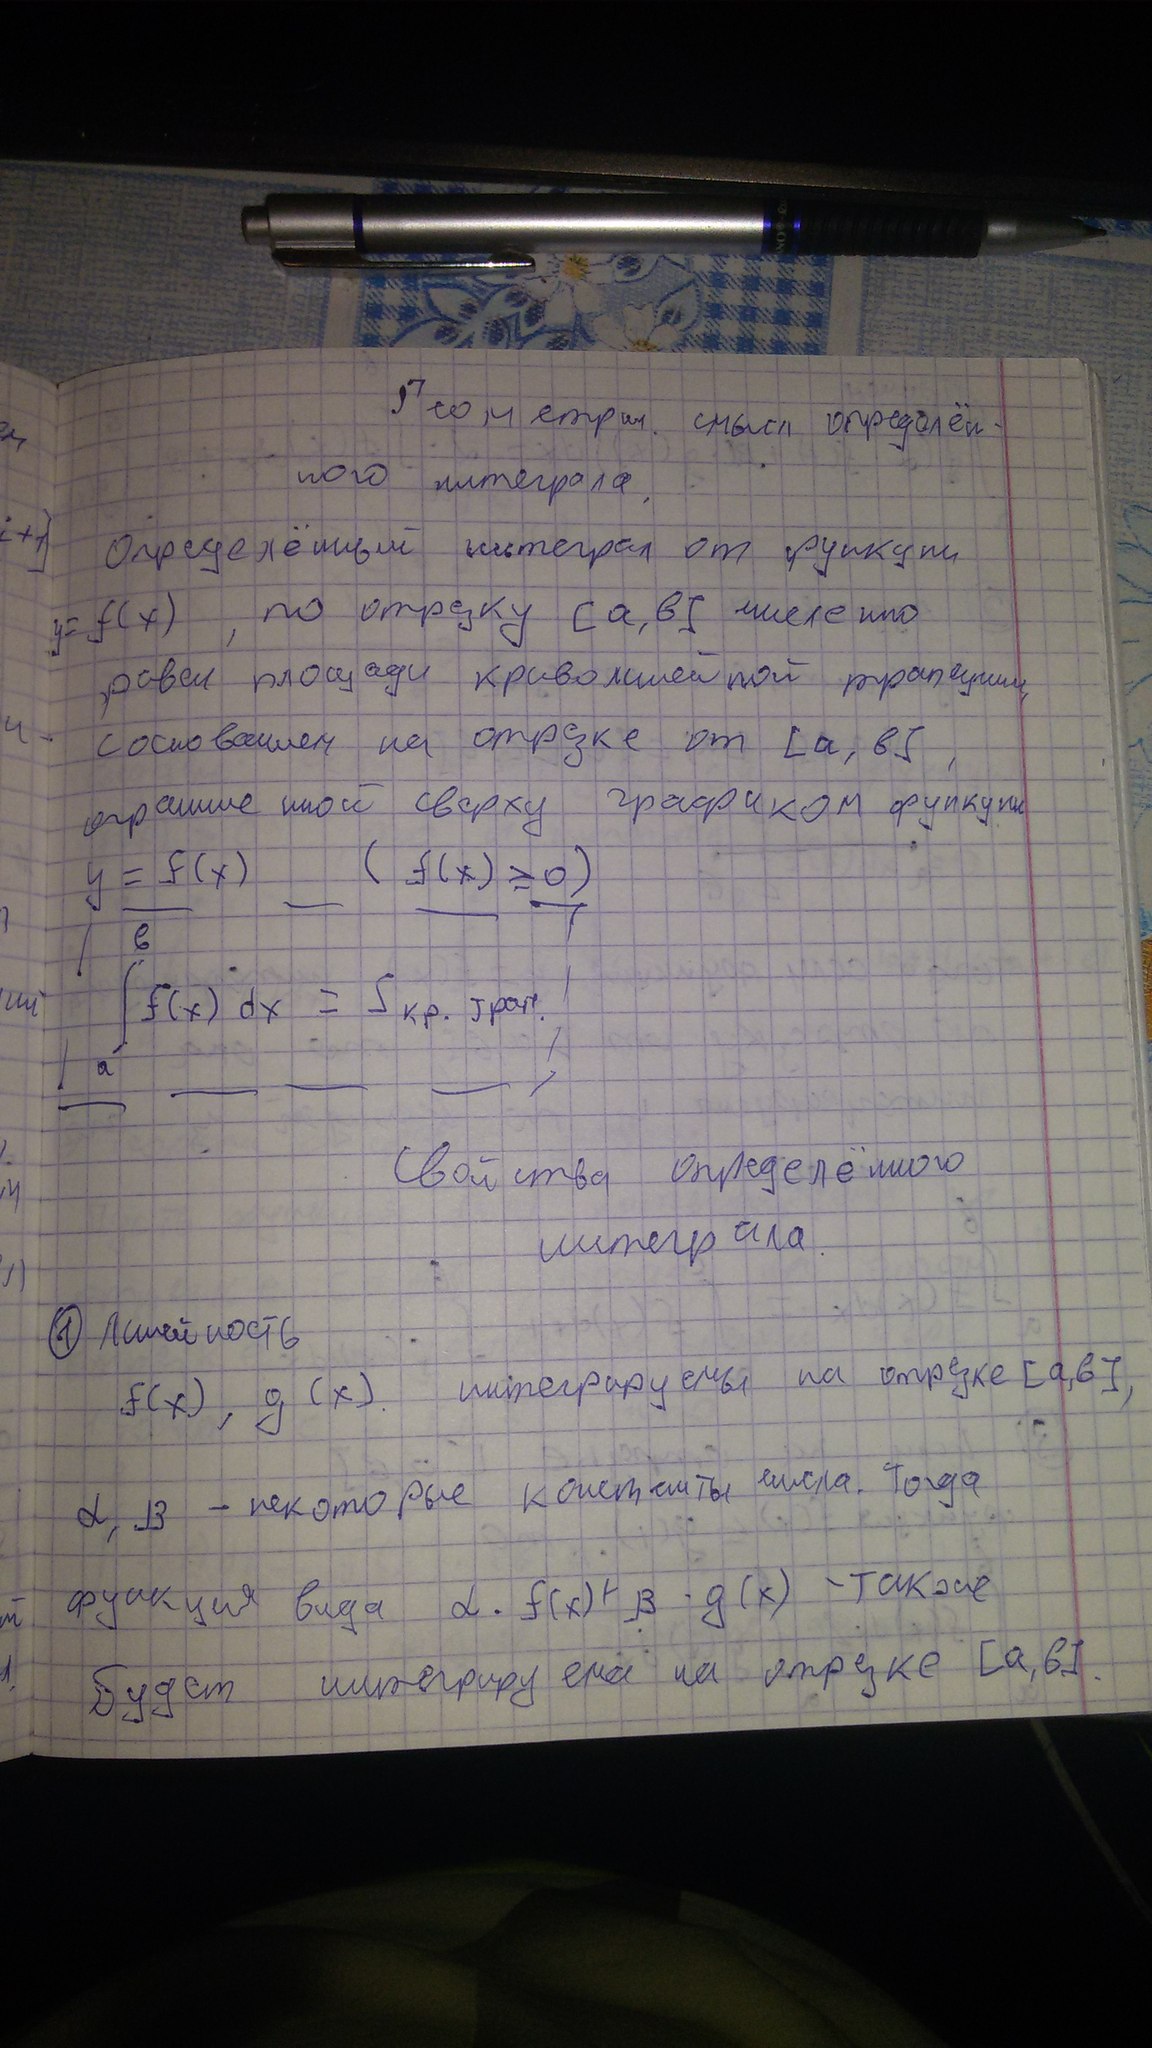 Геометрич. смысл определён-
ного интеграла.
Определённый интеграл от функции
y=f(x), по отрезку [a,b] численно
равен площади криволинейной трапеции,
с основанием на отрезке от [a,b],
ограниченной сверху графиком функции
y = f(x) (f(x) ≥ 0)
b
∫ f(x) dx = S кр. трап.
a
Свойства определённого
интеграла.
① Линейность
f(x), g(x). интегрируемы на отрезке [a,b],
α, β - некоторые константы числа. Тогда
функция вида α · f(x) + β · g(x) - также
будет интегрируема на отрезке [a,b].